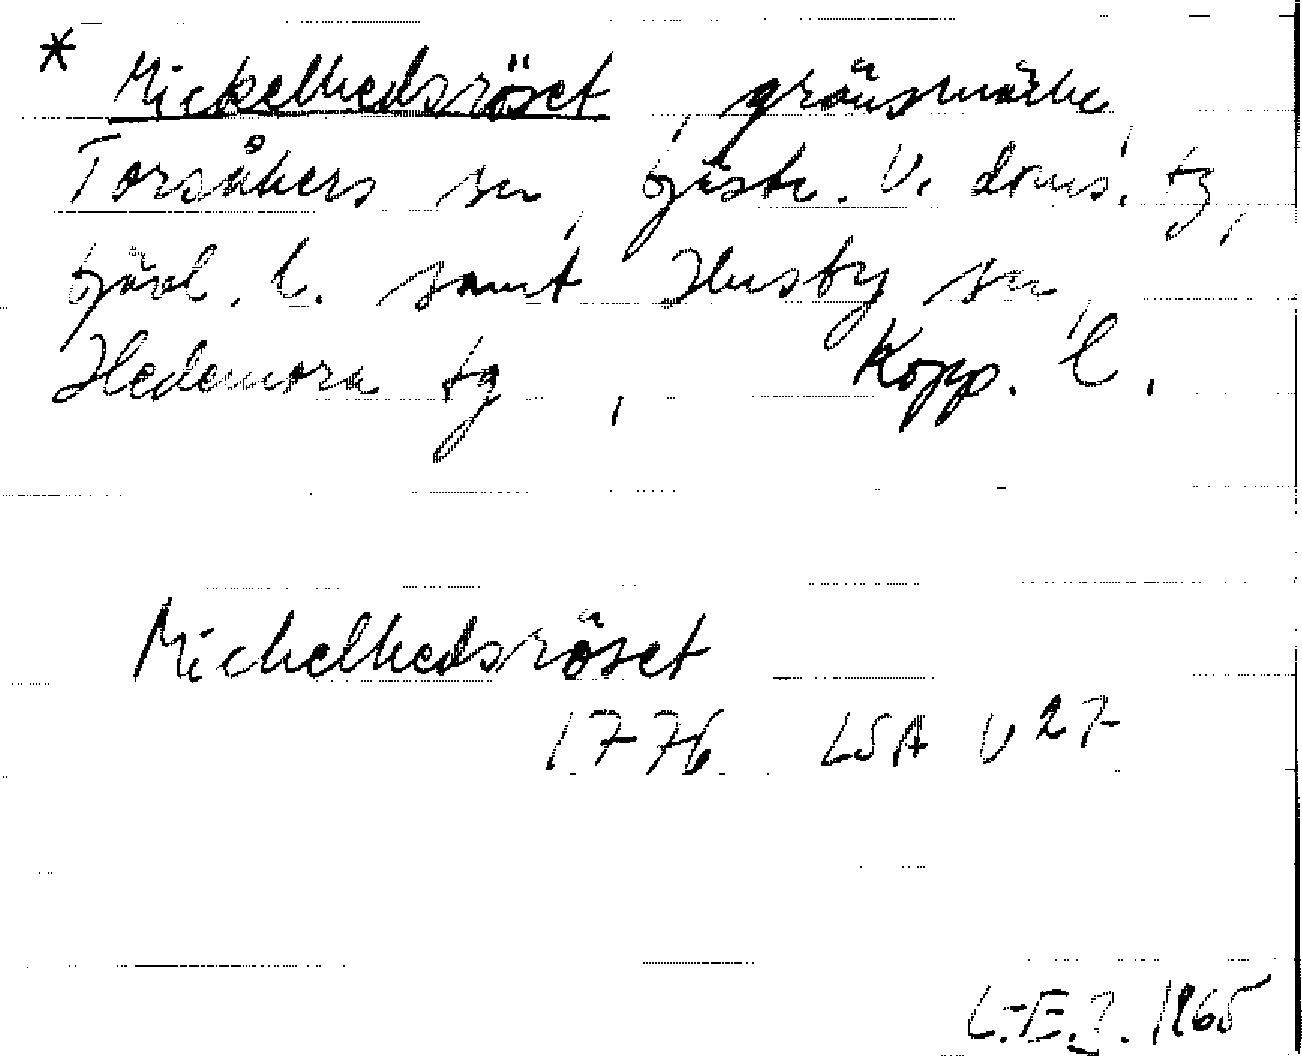 * Mickelhedsröset, gränsmärke,
Torsåkers sn, Gästr. V. doms. tg,
Gävl. l. samt Husby sn,
Hedemora tg, Kopp. l.
Mickelhedsröset
1776 LSA V 27
L.-E. 1965